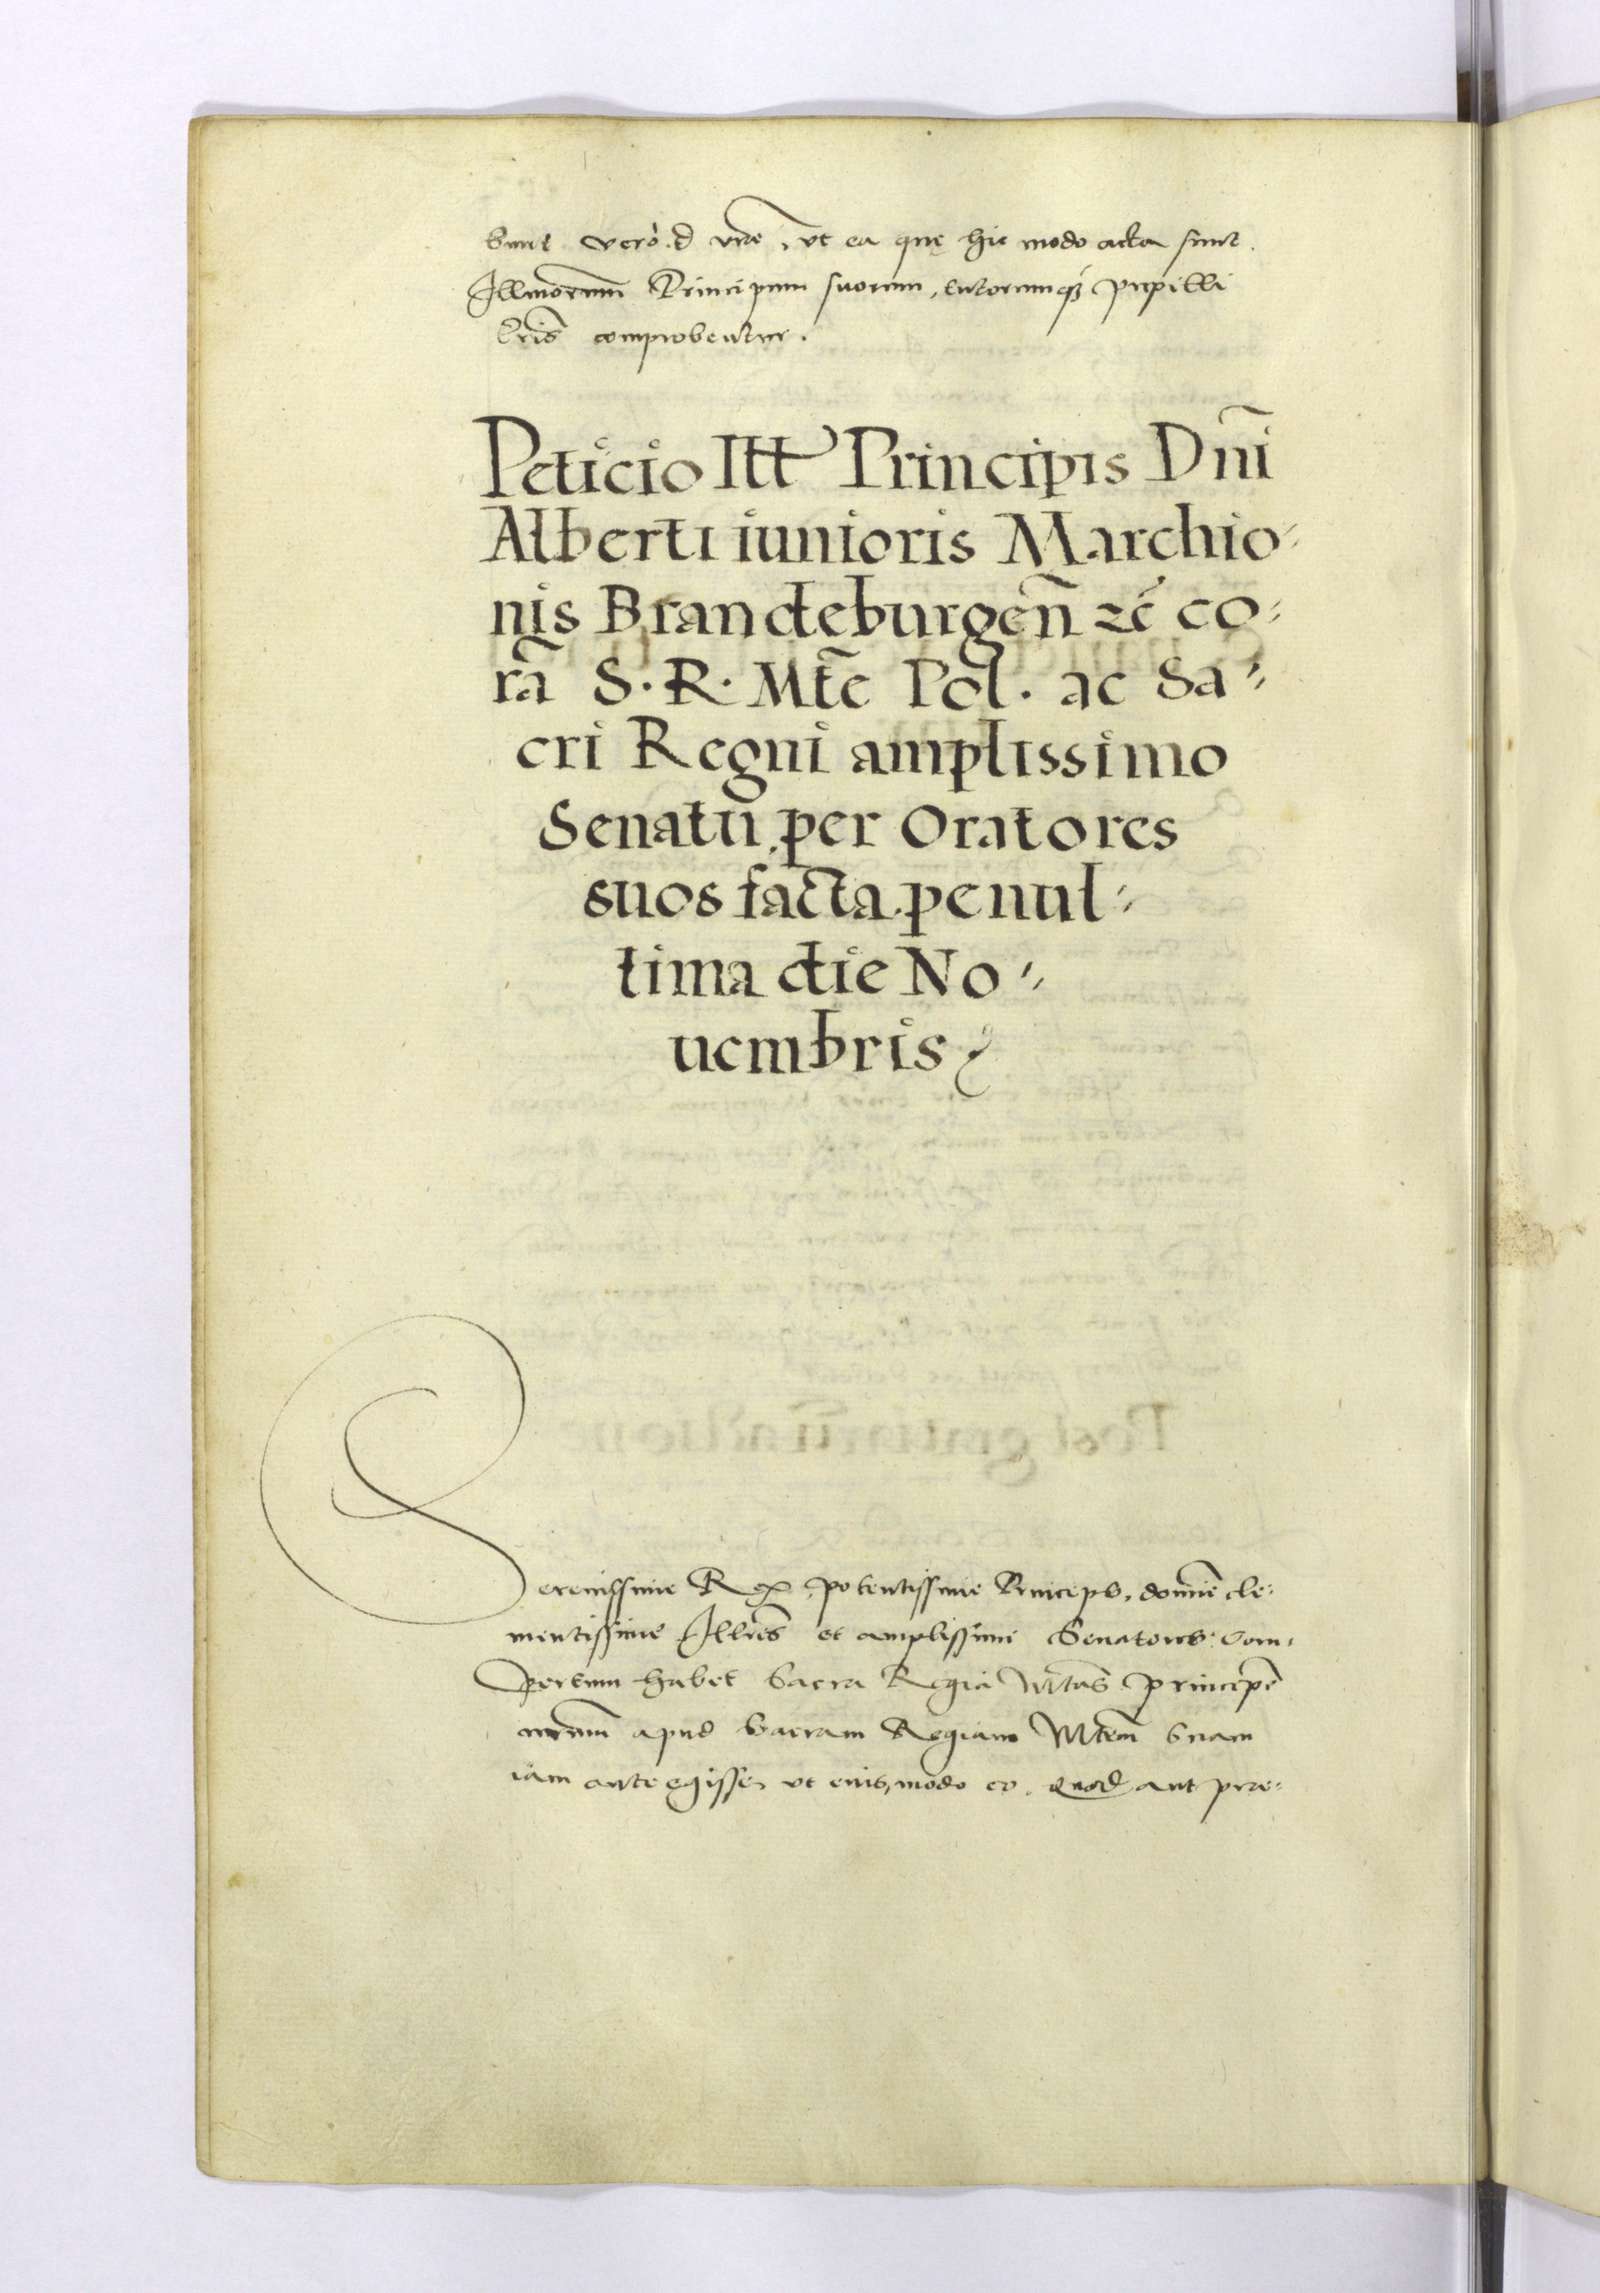 bunt verò. d. vrae, vt ea quę hic modo acta sunt.
Illmorum̃ Principum suorum, tutorumqȝ pupilli
lris̃ comprobentur.
Peticio Ill Principis Dnĩ
Alberti iunioris Marchio⸗
nis Brandeburgeñ ꝛc̃ co⸗
rã S. R. Mtẽ Pol̃. ac Sa⸗
cri Regni amplissimo
Senatu, per Oratores
suos facta. penul⸗
tima die No⸗
uembris
Serenissime Rex, potentissime Princeps, domiñe cle⸗
mentissime Illres̃ et amplissimi Senatores: Com⸗
pertum habet Sacra Regia Mtas̃ principẽ
nrum̃ apud Sacram Regiam Mtem̃ Suam
iam ante egisse, vt eius, modo eo. quod aut prae⸗